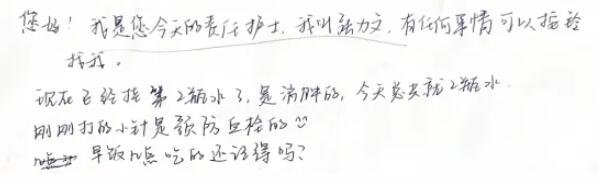 您好！我是您今天的责任护士，我叫张力文，有任何事情可以按铃
找我。
现在已经挂第2瓶水了，是消肿的，今天总共就2瓶水.
刚刚打的小针是预防血栓的
早饭几点吃的还记得吗？